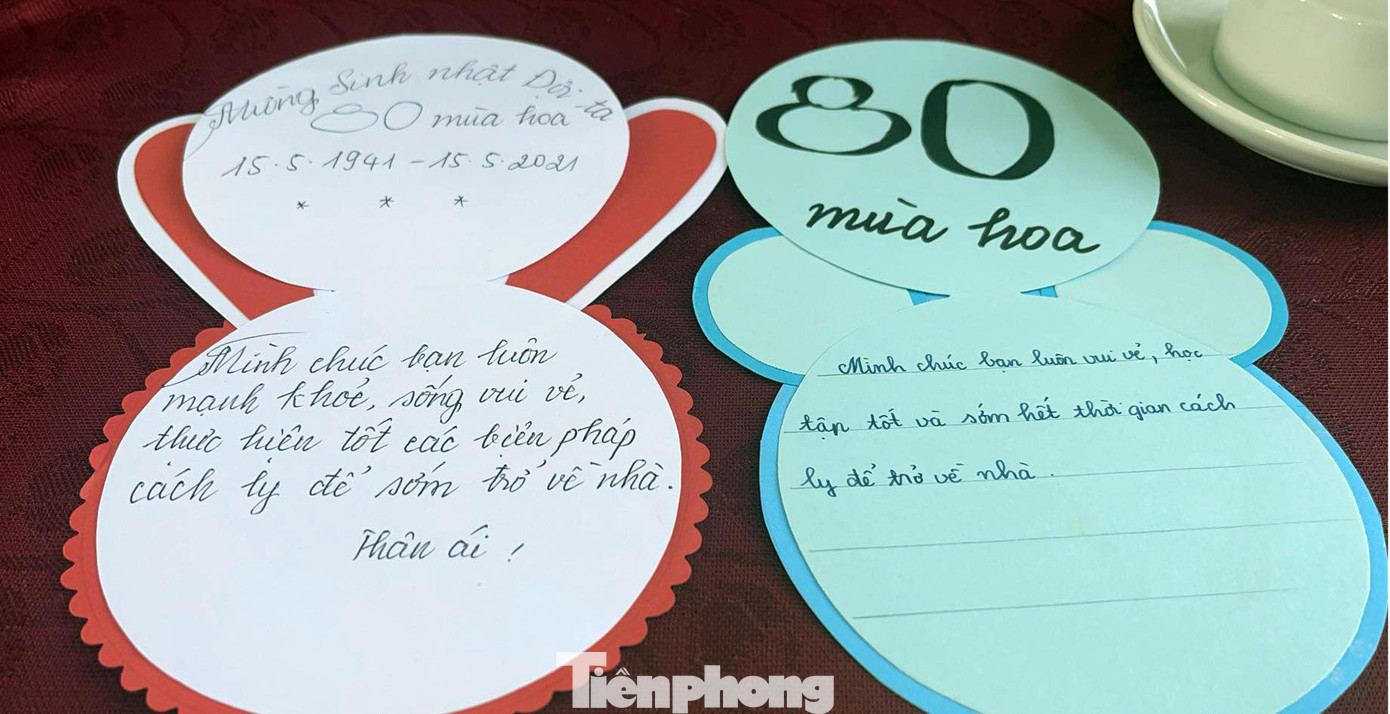 Mừng Sinh nhật Đội ta
80 mùa hoa
15.5.1941 - 15.5.2021
* * *
Mình chúc bạn luôn
mạnh khoẻ, sống vui vẻ,
thực hiện tốt các biện pháp
cách ly để sớm trở về nhà.
Thân ái !
80
mùa hoa
Mình chúc bạn luôn vui vẻ, học
tập tốt và sớm hết thời gian cách
ly để trở về nhà.
Tiềnphong